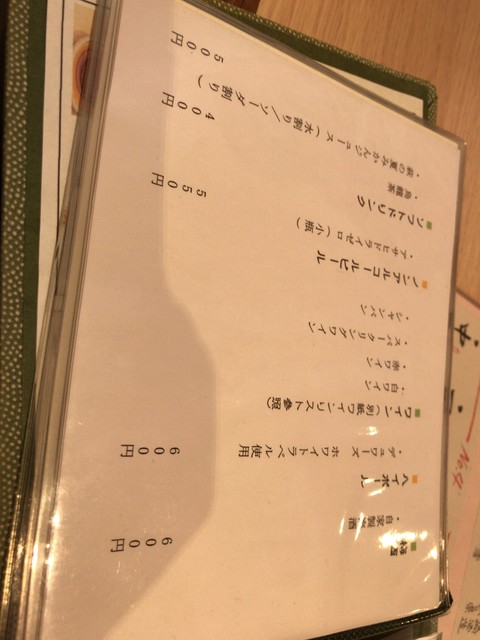 ■梅酒
・自家製梅酒 600円
■ハイボール
・デュワーズ ホワイトラベル使用 600円
■ワイン(別紙ワインリスト参照)
・白ワイン
・赤ワイン
・スパークリングワイン
・シャンパン
■ノンアルコールビール
・アサヒドライゼロ(小瓶) 550円
■ソフトドリンク
・烏龍茶 400円
・萩の夏みかんジュース(水割り/ソーダ割り) 500円
No.9